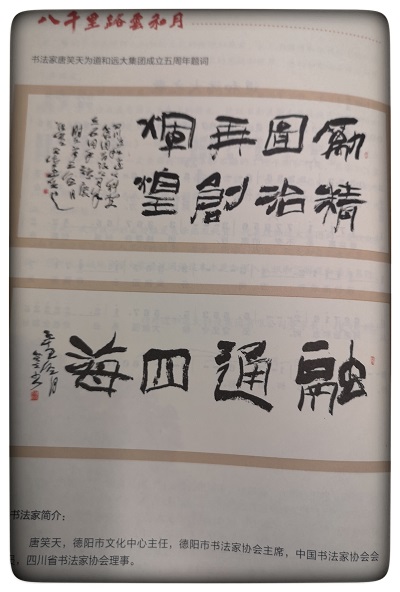 八千里路雲和月
书法家唐笑天为道和远大集团成立五周年题词
勵精
圖治
再創
煇煌
融通四海
书法家简介：
唐笑天，德阳市文化中心主任，德阳市书法家协会主席，中国书法家协会会
员，四川省书法家协会理事。